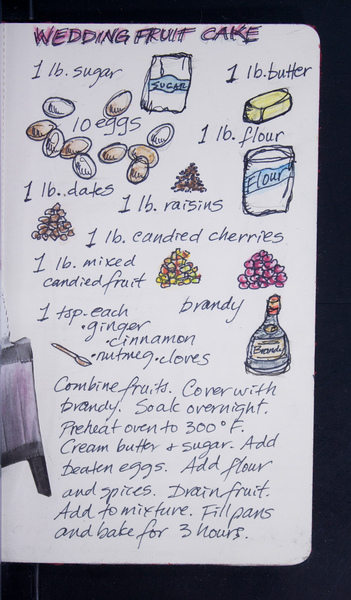 WEDDING FRUIT CAKE
1 lb. sugar
SUGAR
1 lb. butter
10 eggs
1 lb. flour
Flour
1 lb. dates
1 lb. raisins
1 lb. candied cherries
1 lb. mixed
candied fruit
1 tsp. each
• ginger
• cinnamon
• nutmeg • cloves
brandy
Brandy
Combine fruits. Cover with
brandy. Soak overnight.
Preheat oven to 300° F.
Cream butter & sugar. Add
beaten eggs. Add flour
and spices. Drain fruit.
Add to mixture. Fill pans
and bake for 3 hours.